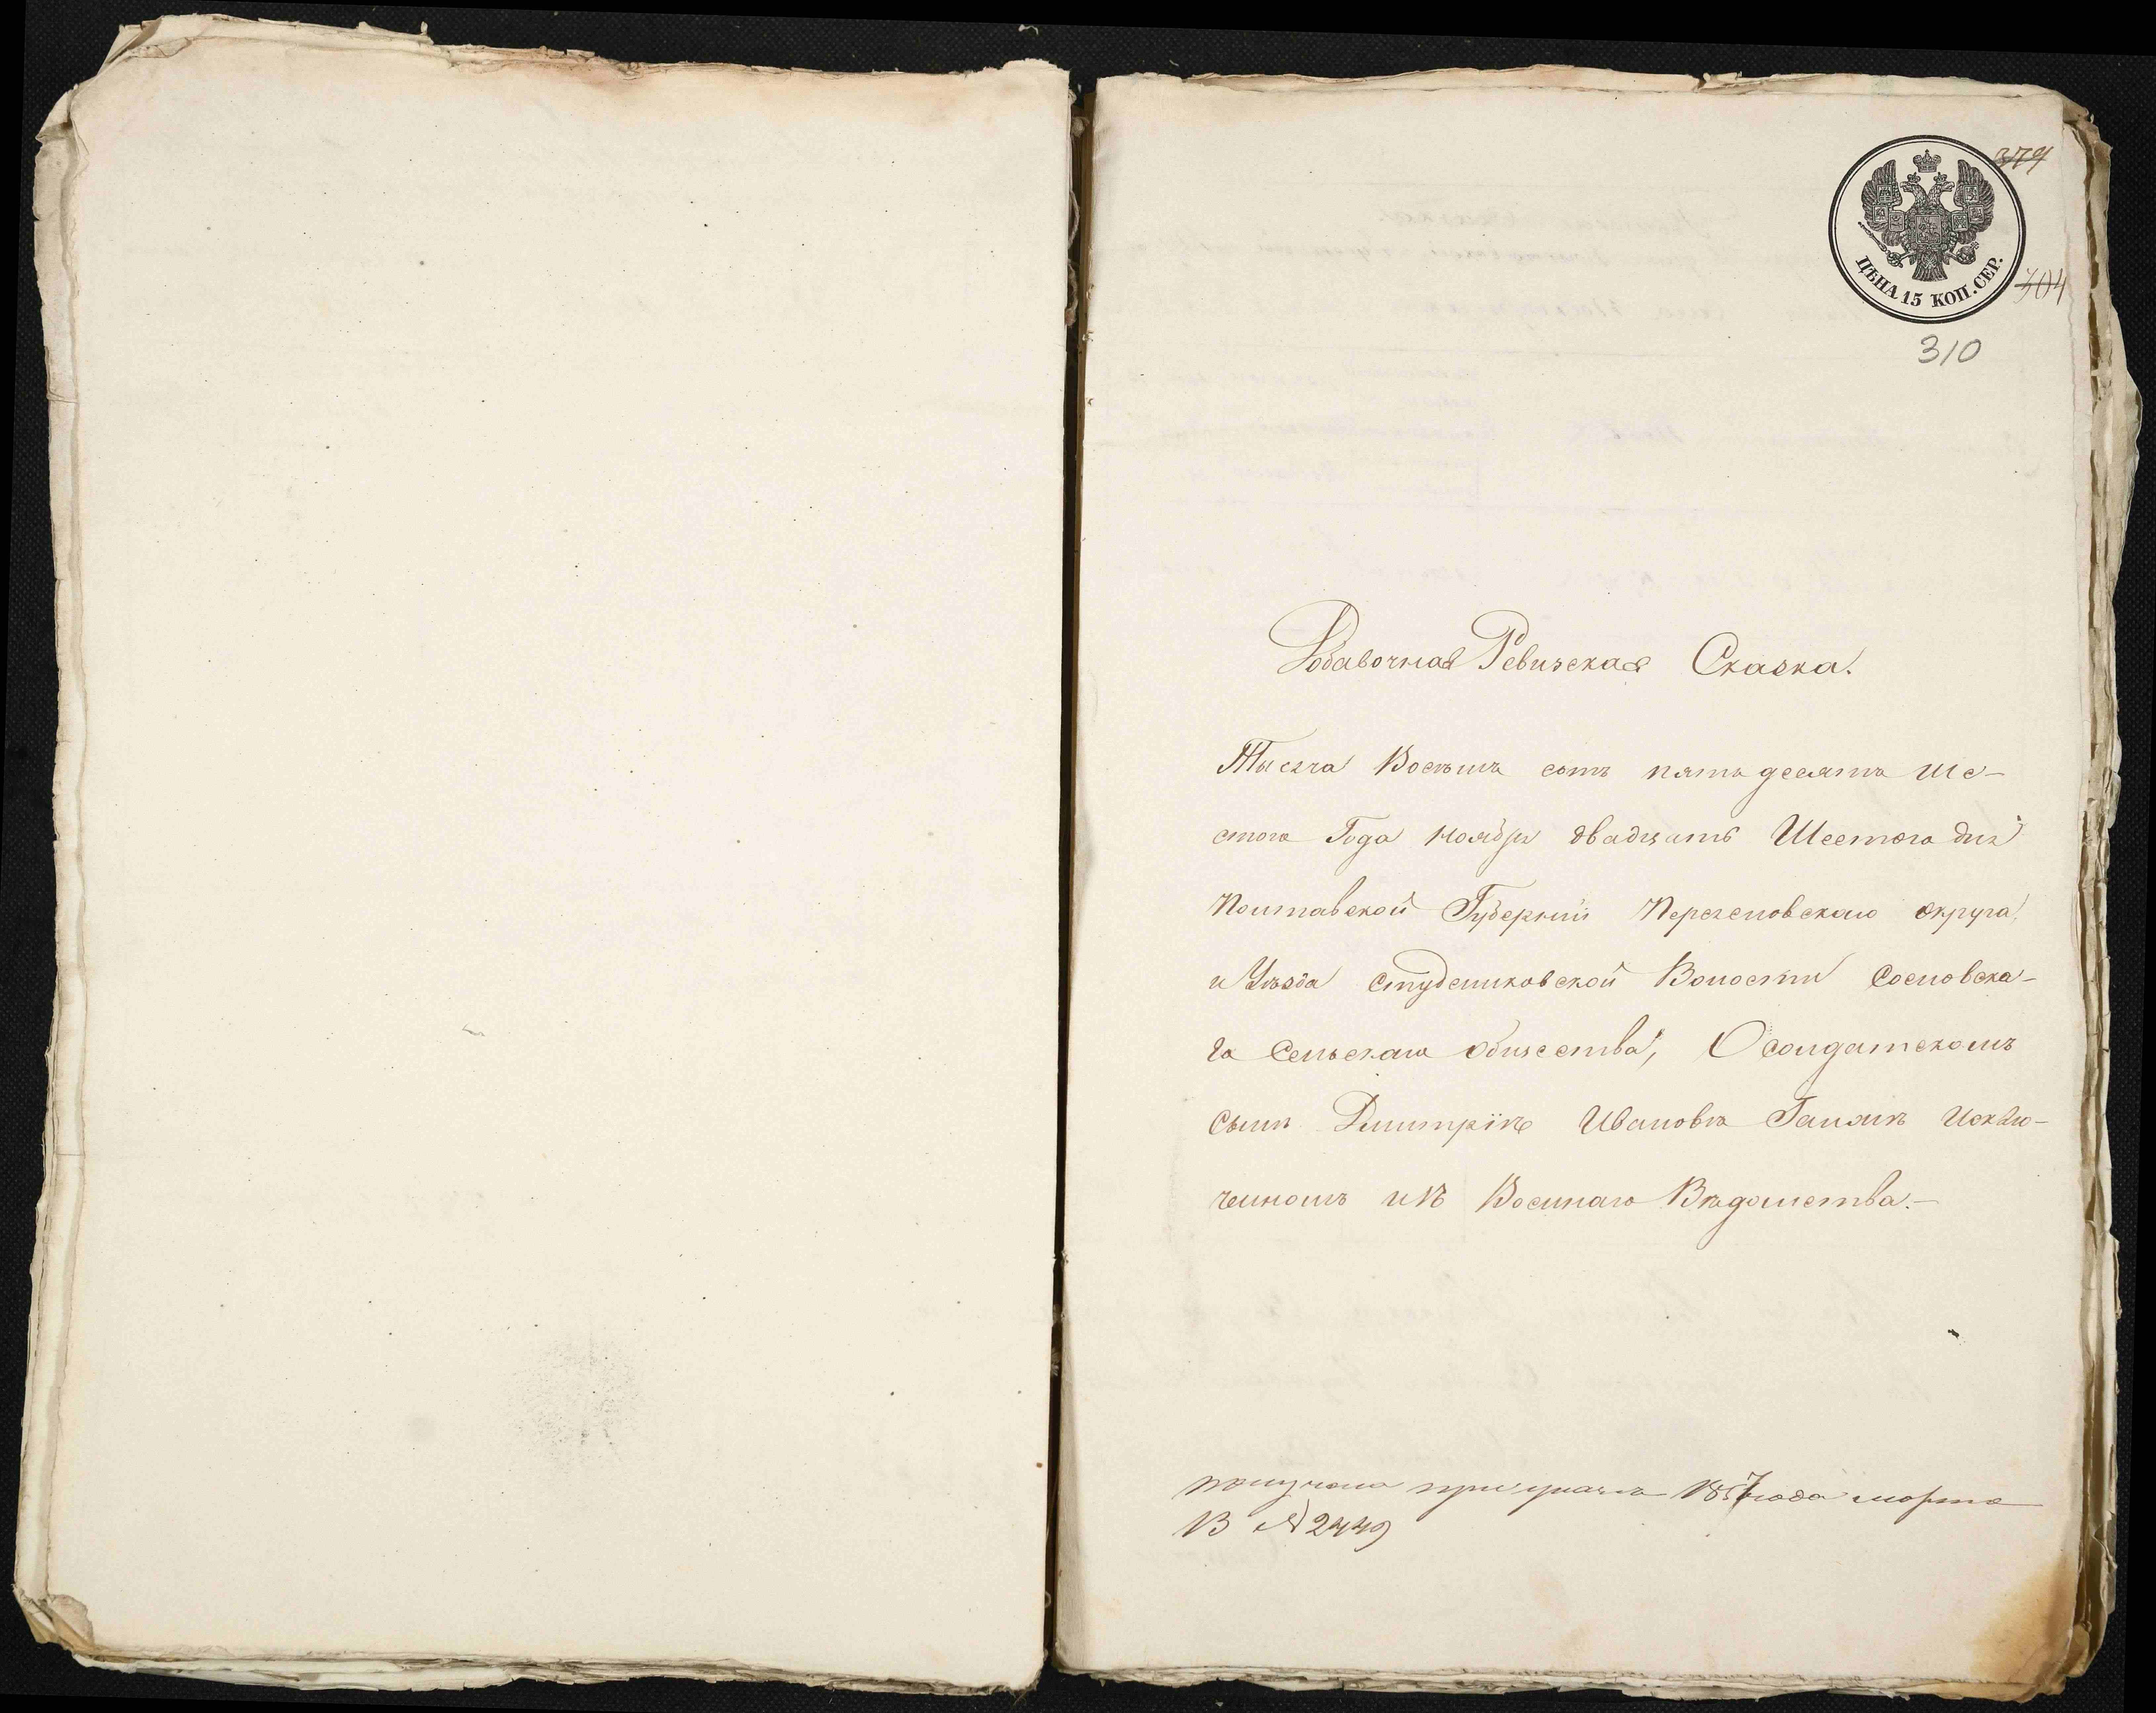 379
ЦѢНА 15 КОП. СЕР.
304
310
Добавочная Ревизская Сказка.
Тысяча Восемь сотъ пятьдесятъ ше-
стого Года ноября двадцать Шестого дня
Полтавской Губерніи Переяславскаго округа,
и Уѣзда Студениковской Волости Сосновска-
го Сельскаго общества, О солдатскомъ
сынѣ Дмитріѣ Ивановѣ Исклю-
ченномъ изъ Военнаго Вѣдомства.—
получена при указѣ 1857 года марта
13 № 2449